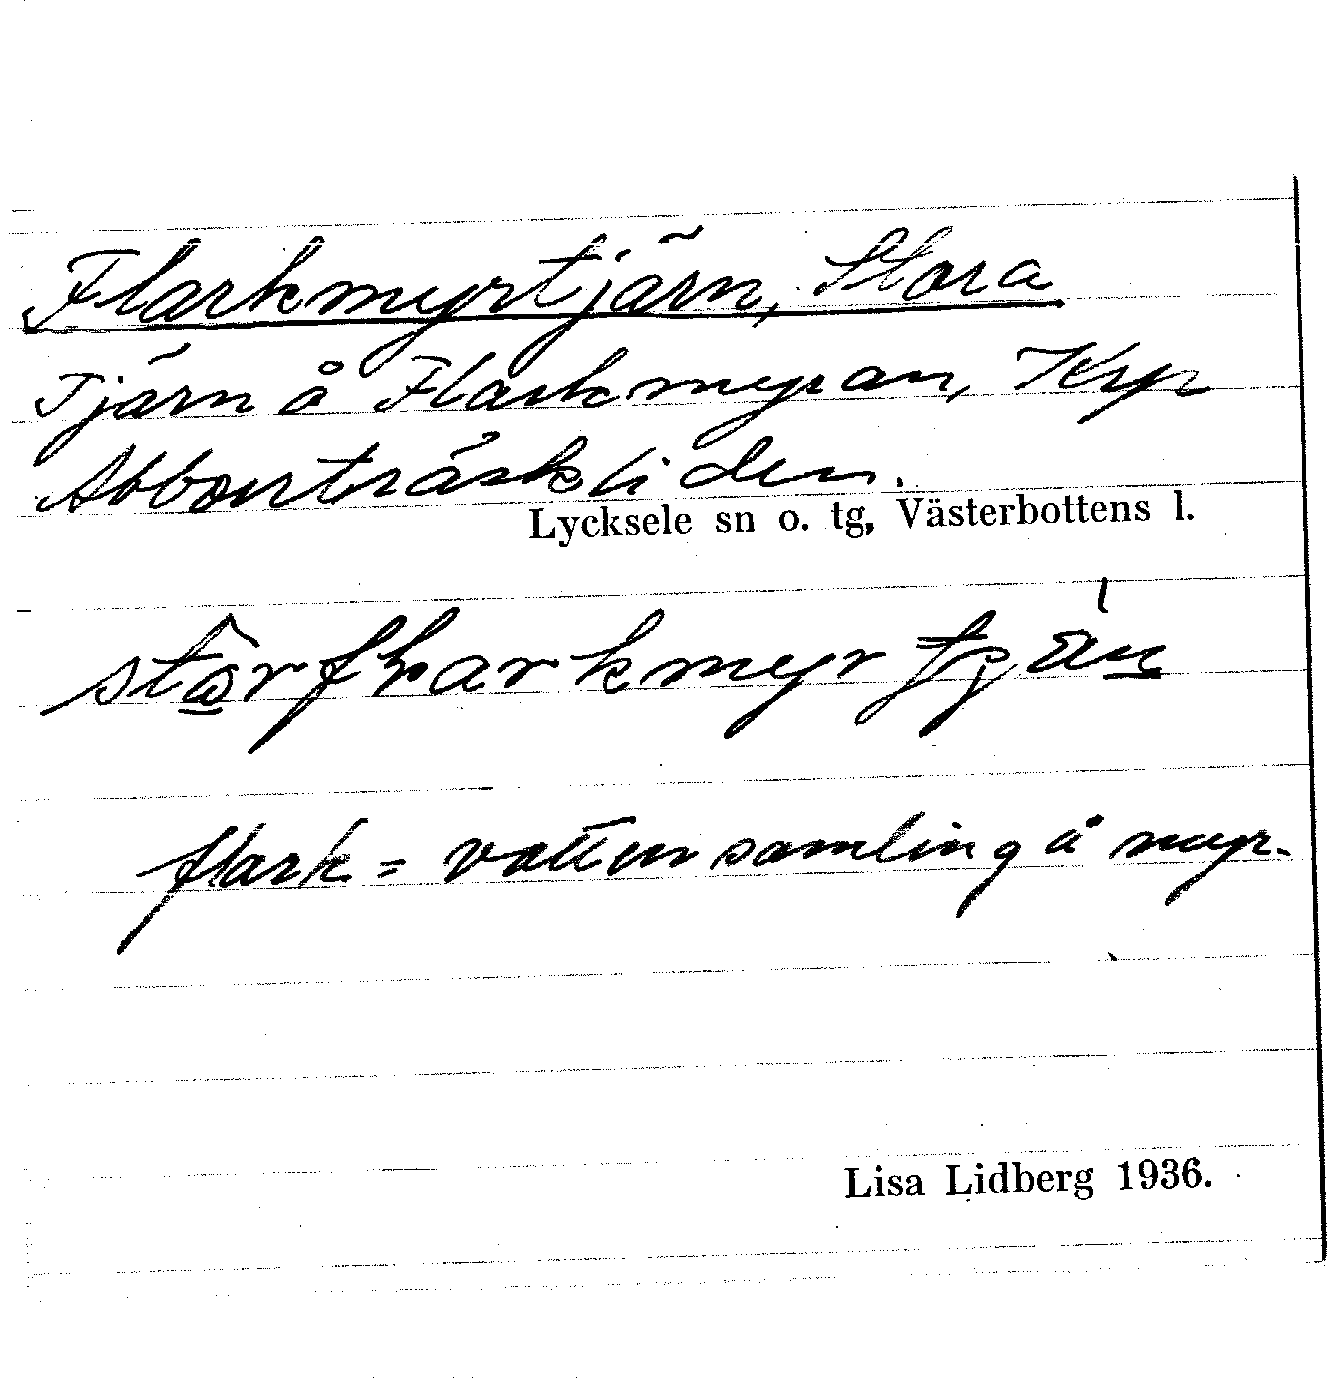 Flarkmyrtjärn, Stora
Tjärn å Flarkmyran, Krp
Abborrträskliden.
Lycksele sn o. tg, Västerbottens l.
flark = vattensamling å myr.
Lisa Lidberg 1936.